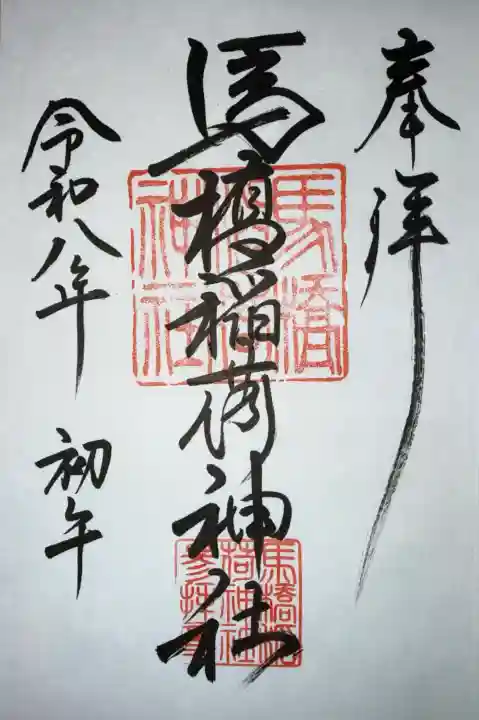 奉拝
馬橋稲荷神社
令和八年 初午
馬橋
稲荷
神社
馬橋稲
荷神社
参拝章